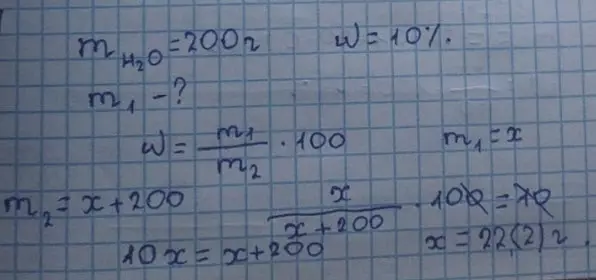 m H₂O = 200г W = 10%.
m₁ - ?
W = m₁/m₂ · 100 m₁ = x
m₂ = x + 200 x/(x + 200) · 100 = 10
10x = x + 200 x = 22,(2) г.